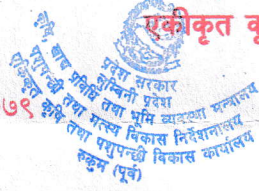 एकीकृत कृ
प्रदेश सरकार
लुम्बिनी प्रदेश
कृषि, खाद्य प्रविधि तथा भूमि व्यवस्था मन्त्रालय
पशुपन्छी तथा मत्स्य विकास निर्देशनालय
एकीकृत कृषि तथा पशुपन्छी विकास कार्यालय
रुकुम (पूर्व)
७९